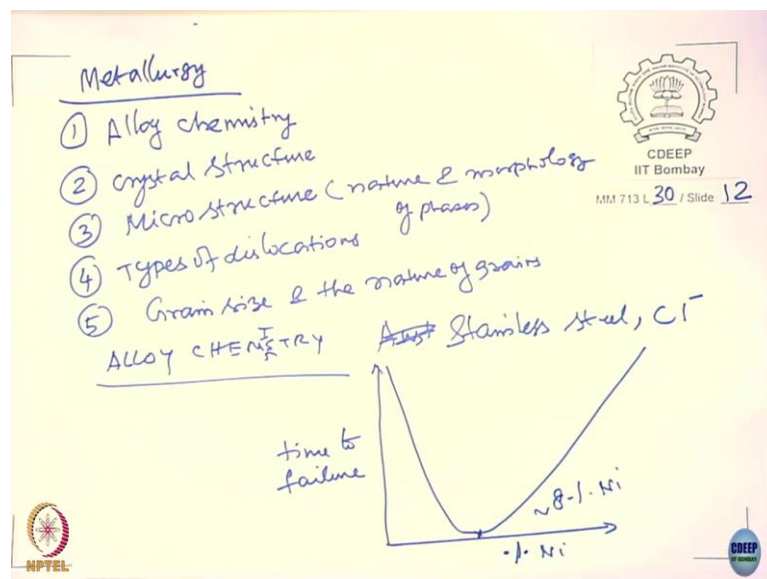 Metallurgy
① Alloy chemistry
② crystal structure
③ Microstructure (nature & morphology
of phases)
④ Types of dislocations
⑤ Grain size & the nature of grains
ALLOY CHEMISTRY Stainless steel, Cl⁻
time to
failure
~8% Ni
% Ni
CDEEP
IIT Bombay
MM 713 L 30 / Slide 12
NPTEL
CDEEP
IIT BOMBAY